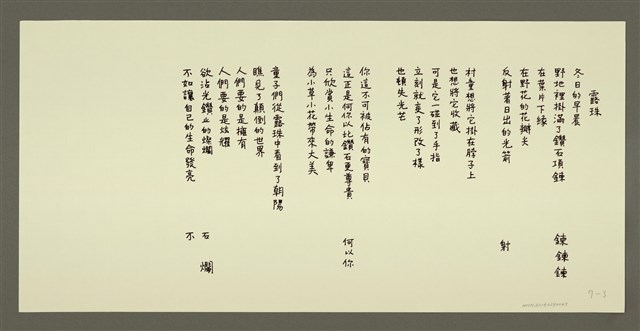 露珠
冬日的早晨
野地裡掛滿了鑽石項鍊
鍊鍊鍊
在葉片下緣
在野花的花瓣尖
反射著日出的光箭
射
村童想將它掛在脖子上
也想將它收藏
可是它一碰到了手指
立刻就變了形改了樣
也頓失光芒
你這不可被佔有的寶貝
這正是何你以比鑽石更尊貴
何以你
只欣賞小生命的謙卑
為小草小花帶來大美
童子們從露珠中看到了朝陽
瞧見了顛倒的世界
人們要的是擁有
人們要的是炫耀
欲沾光鑽业的燦爛
石 爛
不如讓自己的生命發亮
不
7-3